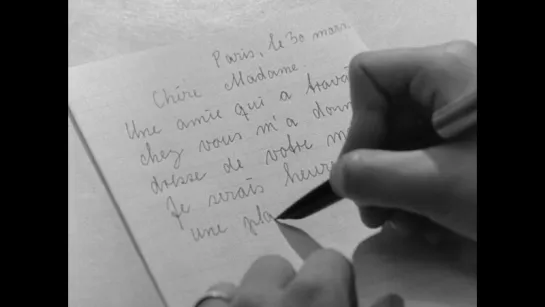 Paris, le 30 mars.
Chère Madame.
Une amie qui a travai
chez vous m'a donn
dresse de votre m
Je serais heure
une pla